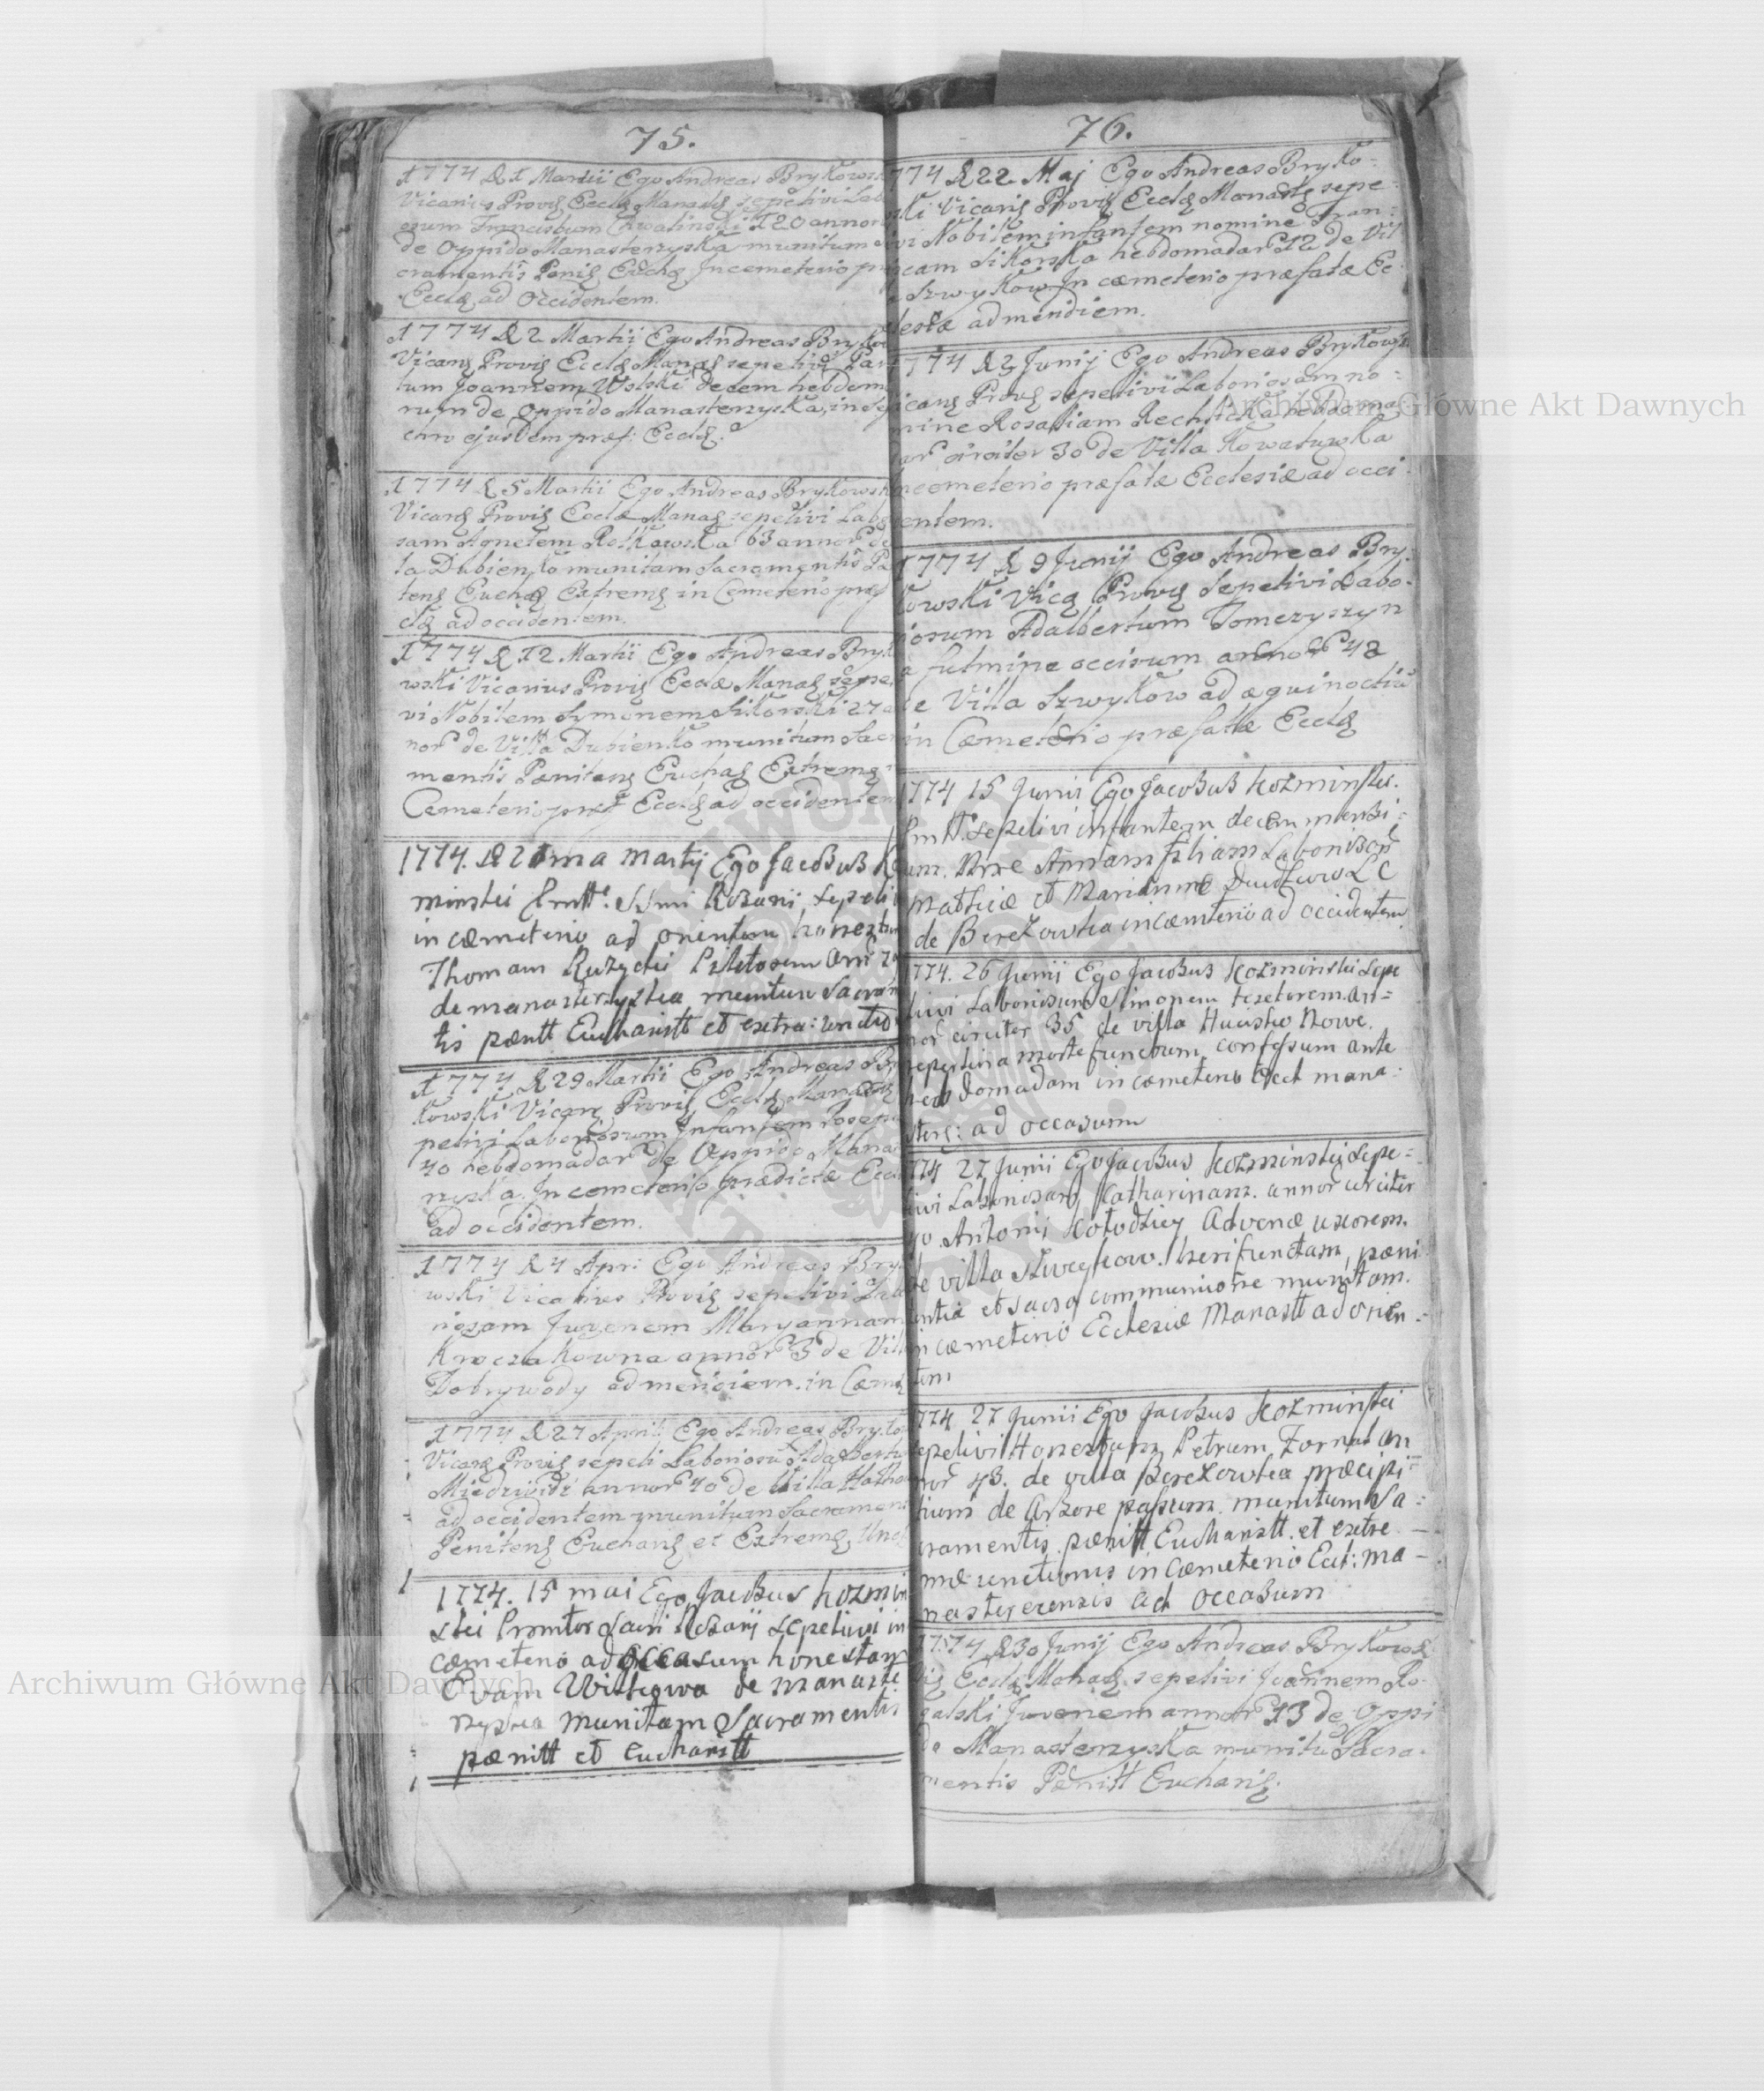 75.
1774 D 1 Martii Ego Andreas Brykowsk
Vicarius Provis Eccls Manas sepelivi Lab
osum Franciscum Chwalinski 120 annor
de Oppido Manasterzyska munitum
cramentis Penis Euchs In cemeterio pr
Eccls ad Occidentem.
1774 D 2 Martii Ego Andreas Bryko
Vicars Provis Eccls Manas sepelivi Par
tum Joannem Wolski decem hebdom
rum de Oppido Manasterzyska, in Sep
chro ejusdem præf: Eccls.
1774 D 5 Martii Ego Andreas Brykowsk
Vicars Provis Eccls Manas sepelivi Labo
sam Agnetem Rołkowska 63 annor de
la Dubienko munitam Sacramentis Pæ
tens Euchas Extrems in Cemeterio præf
cls ad occidentem.
1774 D 12 Martii Ego Andreas Bryk
wski Vicarius Provis Eccæ Manas Sepe
vi Nobilem Symonem Sikorski 27
nor de Villa Dubienko munitum Sacr
mentis Pænitens Euchas Extrems
Cemeterio præf Eccls ad occidentem
1774. D 21ma Martij Ego Jacobus Ko
minski Prmtt. SSmi Rosarij sepeli
in cæmeterio ad orientem honestum
Thomam Ruzycki annr
de manasterzyska munitum Sacram
tis pænitt Eucharistt et extre: unctio
1774 D 29 Martii Ego Andreas Br
kowski Vicars Provis Eccls Manas
pelivi Laboriosum Infantem Joseph
40 hebdomadar de Oppido Manas
ryska. In cemeterio prædictæ Eccl
ad occidentem.
1774 D 4 Apri Ego Andreas Bryk
wski Vicarius Provis sepelivi Labo
riosam Juvenem Maryannam
Kroczakowna annor 3 de Vill
Dobrywody ad meridiem. in Cæm
1774 D 27 Aprili Ego Andreas Bryko
Vicars Provis sepeli Laboriosū Adalbertu
Miedzwidz annor 40 de Villa
ad occidentem munitum Sacramen
Penitens Euchans et Extrems Unc
1774. 15 mai Ego Jacobus Kozmin
ski Promtor Sacri Rosarij sepelivi in
cæmeterio ad occasum honestam
Evam Witkowa de manaste
rzyska munitam Sacramentis
pænitt et Eucharistt
76.
774 D 22 Maj Ego Andreas Bryko-
ski Vicaris Provis Eccls Monasts sepe-
ivi Nobilem infantem nomine Fran-
cam Sikorska hebdomadar 12 de Vil
a Szwykow In cæmeterio præfatæ Ec-
lesiæ ad meridiem.
774 D 3 Junij Ego Andreas Brykowsk
icars Provs sepelivi Laboriosam no-
mine Rosaliam Rechticka hebdoma
ar circiter 30 de Villa Kowalowka
n cemeterio præfatæ Ecclesiæ ad occi-
entem.
1774 D 9 Junij Ego Andreas Bry-
kowski Vics Provs Sepelivi Labo-
riosum Adalbertum Tomczyszyn
a fulmine occisum annor 48
de Villa Szwykow ad æquinoctiū
in Cæmeterio præfatæ Eccls
774 15 Junii Ego Jacobus Kozminski.
Prmtt. sepelivi infantem decem mensi-
um. Nne Annam filiam Laboriosor
Mathiæ et Mariannæ
de Berezowka in cæmterio ad occidentem.
1774. 26 Junii Ego Jacobus Kozminski sepe
livi Laboriosum Simonem textorem. an=
nor circiter 35 de villa Hucisko Nowe.
repentina morte functum, confessum ante
hebdomadam in cæmeterio Eccl mana-
ster: ad occasum
774 27 Junii Ego Jacobus Kozminskj sepe-
livi Laboriosam Catharinam. annor circiter
Antonii Kołodziey Advenæ uxorem.
de villa Szweykow. heri functam, pæni
entia et sacra communione munitam.
in cæmeterio Ecclesiæ Manastt ad orien-
tem
774. 27 Junii Ego Jacobus Kozminski
sepelivi Honestum Petrum Zornal an
nor 43. de villa Berezowka præcipi-
tium de arbore passum. munitum Sa-
cramentis. pænitt. Eucharistt. et extre-
mæ unctionis in Cæmeterio Eccl: ma-
nasterzensis ad occasum
1774 D 30 Junij Ego Andreas Brykowsk
Eccls Monas sepelivi Joannem Ro-
galski Juvenem annor 13 de Oppi
do Manasterzyska munitū Sacra-
mentis Pænitt Eucharis.
Archiwum Główne Akt Dawnych
Archiwum Główne Akt Dawnych